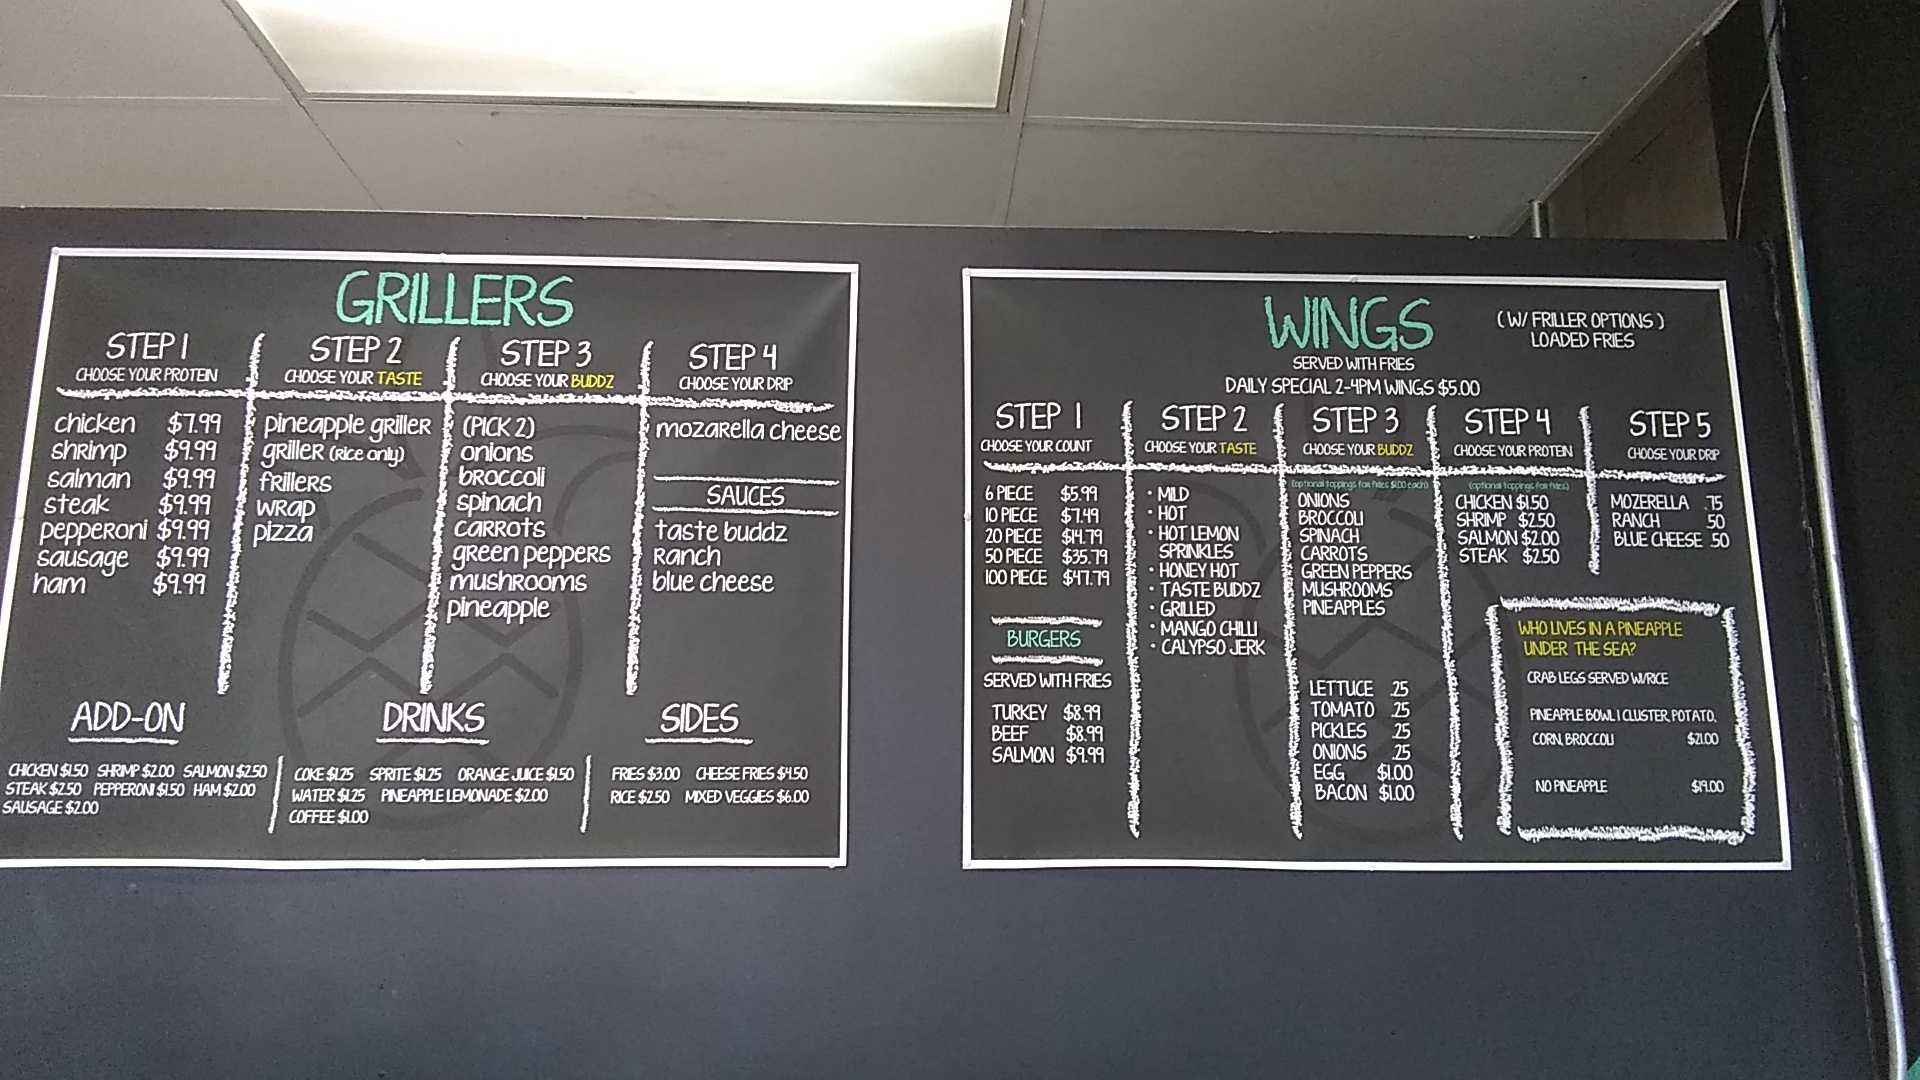 GRILLERS
STEP 1
CHOOSE YOUR PROTEIN
chicken $7.99
shrimp $9.99
salman $9.99
steak $9.99
pepperoni $9.99
sausage $9.99
ham $9.99
STEP 2
CHOOSE YOUR TASTE
pineapple griller
griller (rice only)
frillers
wrap
pizza
STEP 3
CHOOSE YOUR BUDDZ
(PICK 2)
onions
broccoli
spinach
carrots
green peppers
mushrooms
pineapple
STEP 4
CHOOSE YOUR DRIP
mozarella cheese
SAUCES
taste buddz
Ranch
blue cheese
ADD-ON
CHICKEN $1.50 SHRIMP $2.00 SALMON $2.50
STEAK $2.50 PEPPERONI $1.50 HAM $2.00
SAUSAGE $2.00
DRINKS
COKE $1.25 SPRITE $1.25 ORANGE JUICE $1.50
WATER $1.25 PINEAPPLE LEMONADE $2.00
COFFEE $1.00
SIDES
FRIES $3.00 CHEESE FRIES $4.50
RICE $2.50 MIXED VEGGIES $6.00
WINGS
(W/ FRILLER OPTIONS)
LOADED FRIES
SERVED WITH FRIES
DAILY SPECIAL 2-4PM WINGS $5.00
STEP 1
CHOOSE YOUR COUNT
6 PIECE $5.99
10 PIECE $7.49
20 PIECE $14.79
50 PIECE $35.79
100 PIECE $47.79
BURGERS
SERVED WITH FRIES
TURKEY $8.99
BEEF $8.99
SALMON $9.99
STEP 2
CHOOSE YOUR TASTE
• MILD
• HOT
• HOT LEMON
SPRINKLES
• HONEY HOT
• TASTE BUDDZ
• GRILLED
• MANGO CHILLI
• CALYPSO JERK
STEP 3
CHOOSE YOUR BUDDZ
(optional toppings for fries $1.00 each)
ONIONS
BROCCOLI
SPINACH
CARROTS
GREEN PEPPERS
MUSHROOMS
PINEAPPLES
LETTUCE .25
TOMATO .25
PICKLES .25
ONIONS .25
EGG $1.00
BACON $1.00
STEP 4
CHOOSE YOUR PROTEIN
(optional toppings for fries)
CHICKEN $1.50
SHRIMP $2.50
SALMON $2.00
STEAK $2.50
STEP 5
CHOOSE YOUR DRIP
MOZERELLA .75
RANCH .50
BLUE CHEESE .50
WHO LIVES IN A PINEAPPLE
UNDER THE SEA?
CRAB LEGS SERVED W/RICE
PINEAPPLE BOWL 1 CLUSTER, POTATO,
CORN, BROCCOLI $21.00
NO PINEAPPLE $19.00